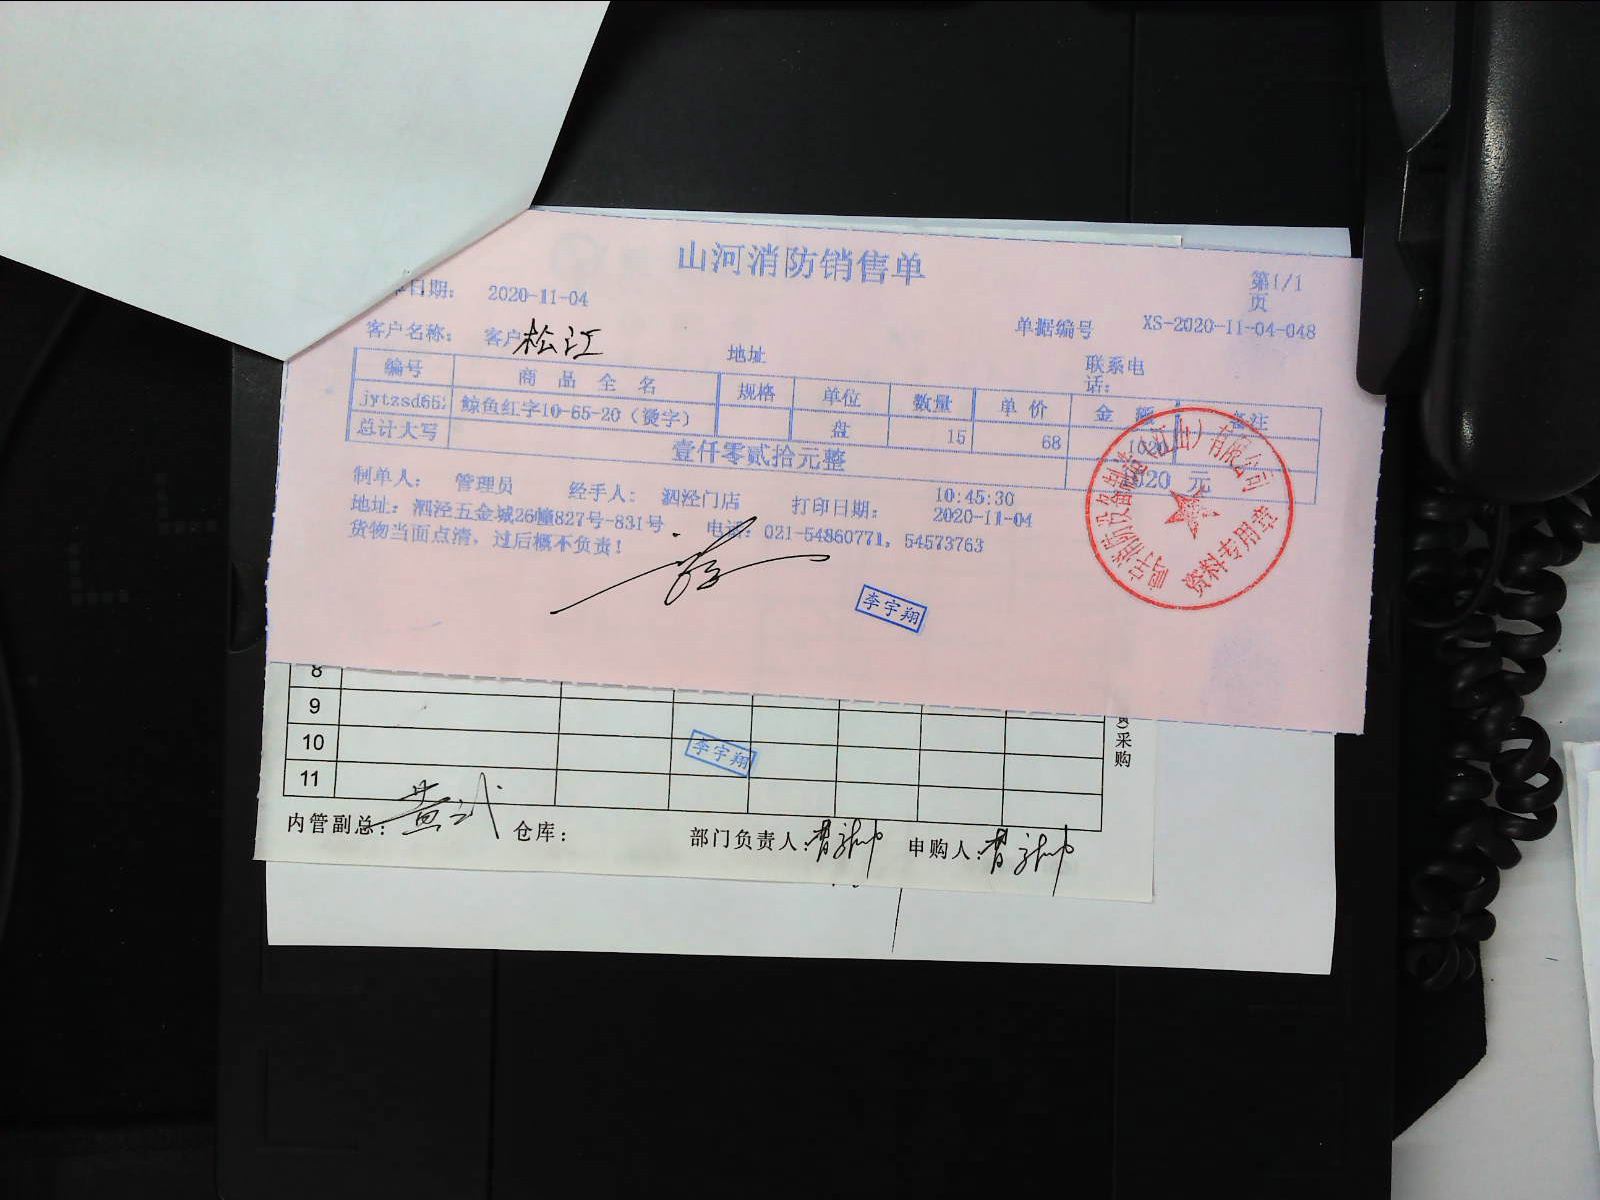 山河消防销售单
第1/1页
日期: 2020-11-04
客户名称: 客户 松江 地址 单据编号 XS-2020-11-04-048
联系电话:
编号 商品全名 规格 单位 数量 单价 金额 备注
jytzsd652 鲸鱼红字10-65-20（烫字） 盘 15 68 1020
总计大写 壹仟零贰拾元整 1020 元
制单人: 管理员 经手人: 泗泾门店 打印日期: 10:45:30 2020-11-04
地址: 泗泾五金城26幢827号-831号 电话: 021-54860771, 54573763
货物当面点清，过后概不负责!
李宇翔
资料专用章
8
9
10
11
李宇翔
采购
内管副总: 仓库: 部门负责人: 申购人: